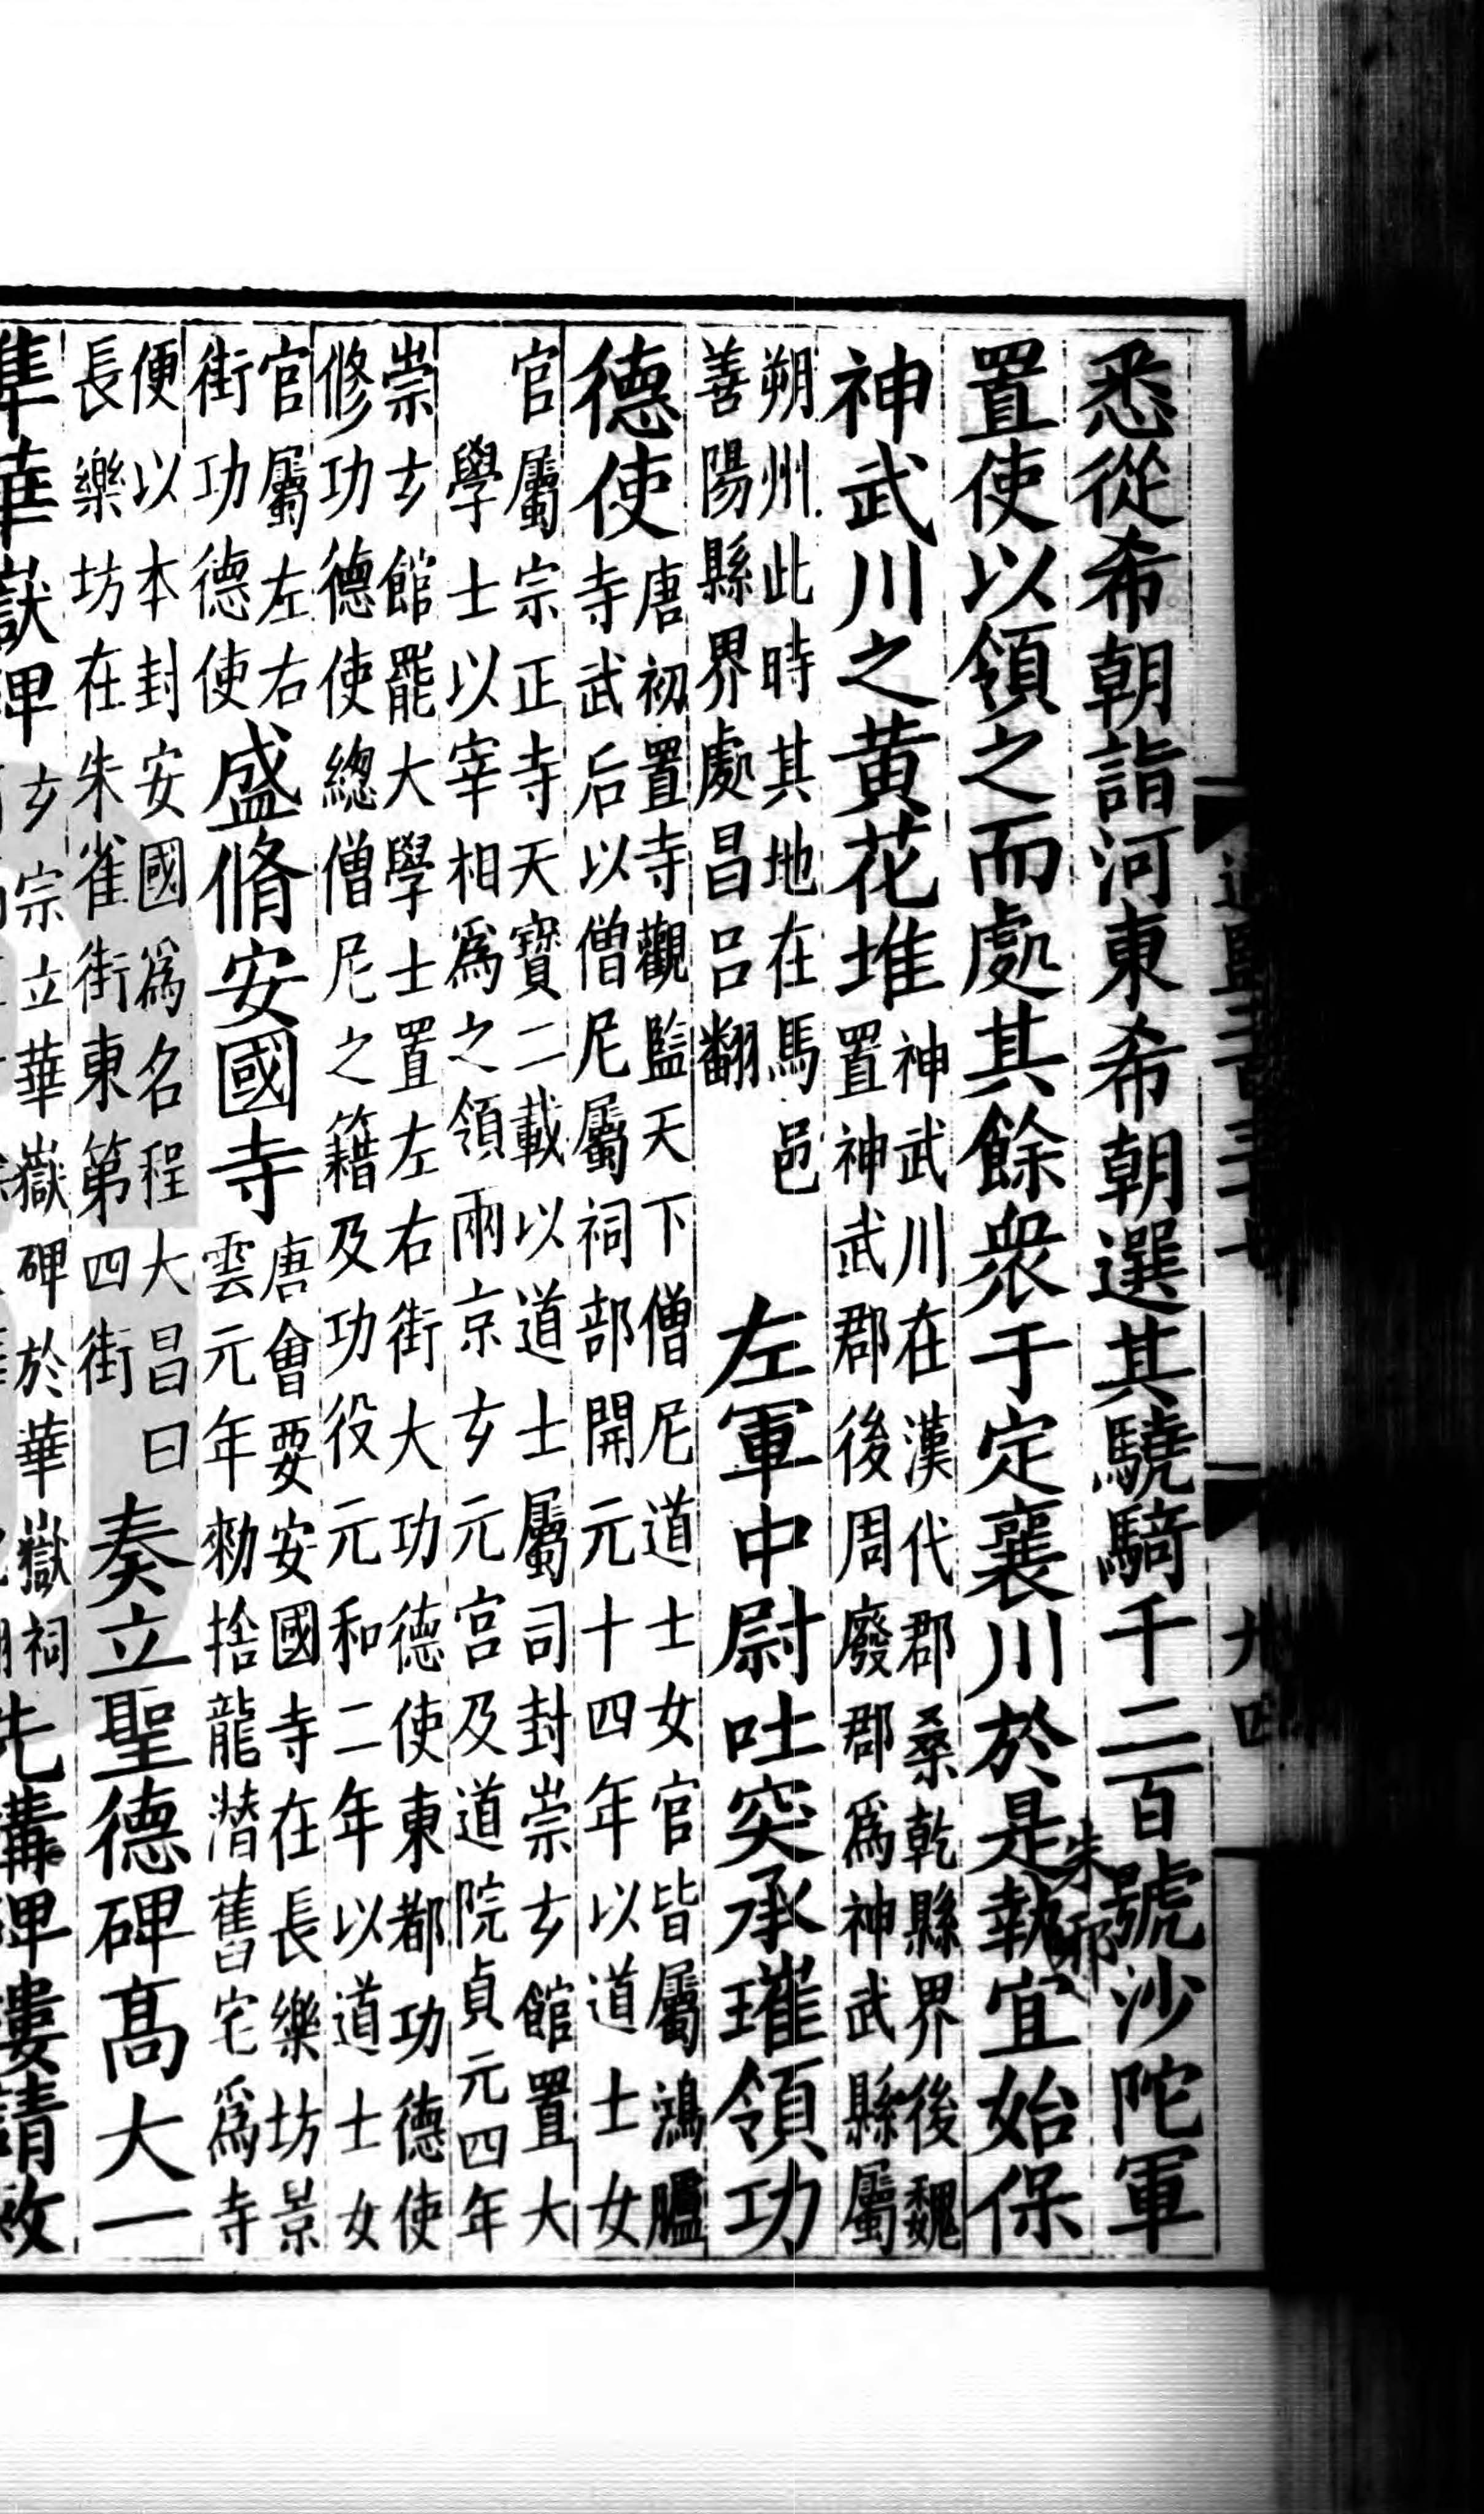 悉從希朝詣河東希朝選其驍騎千二百號沙陀軍
置使以領之而處其餘衆于定襄川於是執宜始保
朱邪
神武川之黃花堆
神武川在漢代郡桑乾縣界後魏
置神武郡後周廢郡爲神武縣屬
朔州此時其地在馬邑
善陽縣界處昌呂翻
左軍中尉吐突承璀領功
德使
唐初置寺觀監天下僧尼道士女官皆屬鴻臚
寺武后以僧尼屬祠部開元十四年以道士女
官屬宗正寺天寶二載以道士屬司封崇玄館置大
學士以宰相爲之領兩京玄元宮及道院貞元四年
崇玄館罷大學士置左右街大功德使東都功德使
修功德使緫僧尼之籍及功役元和二年以道士女
官屬左右
街功德使
盛脩安國寺
唐會要安國寺在長樂坊景
雲元年勑捨龍潛舊宅爲寺
便以本封安國爲名程大昌曰
長樂坊在朱雀街東第四街
奏立聖德碑高大一
準華嶽碑
玄宗立華嶽碑於華嶽祠
先構碑樓請敕